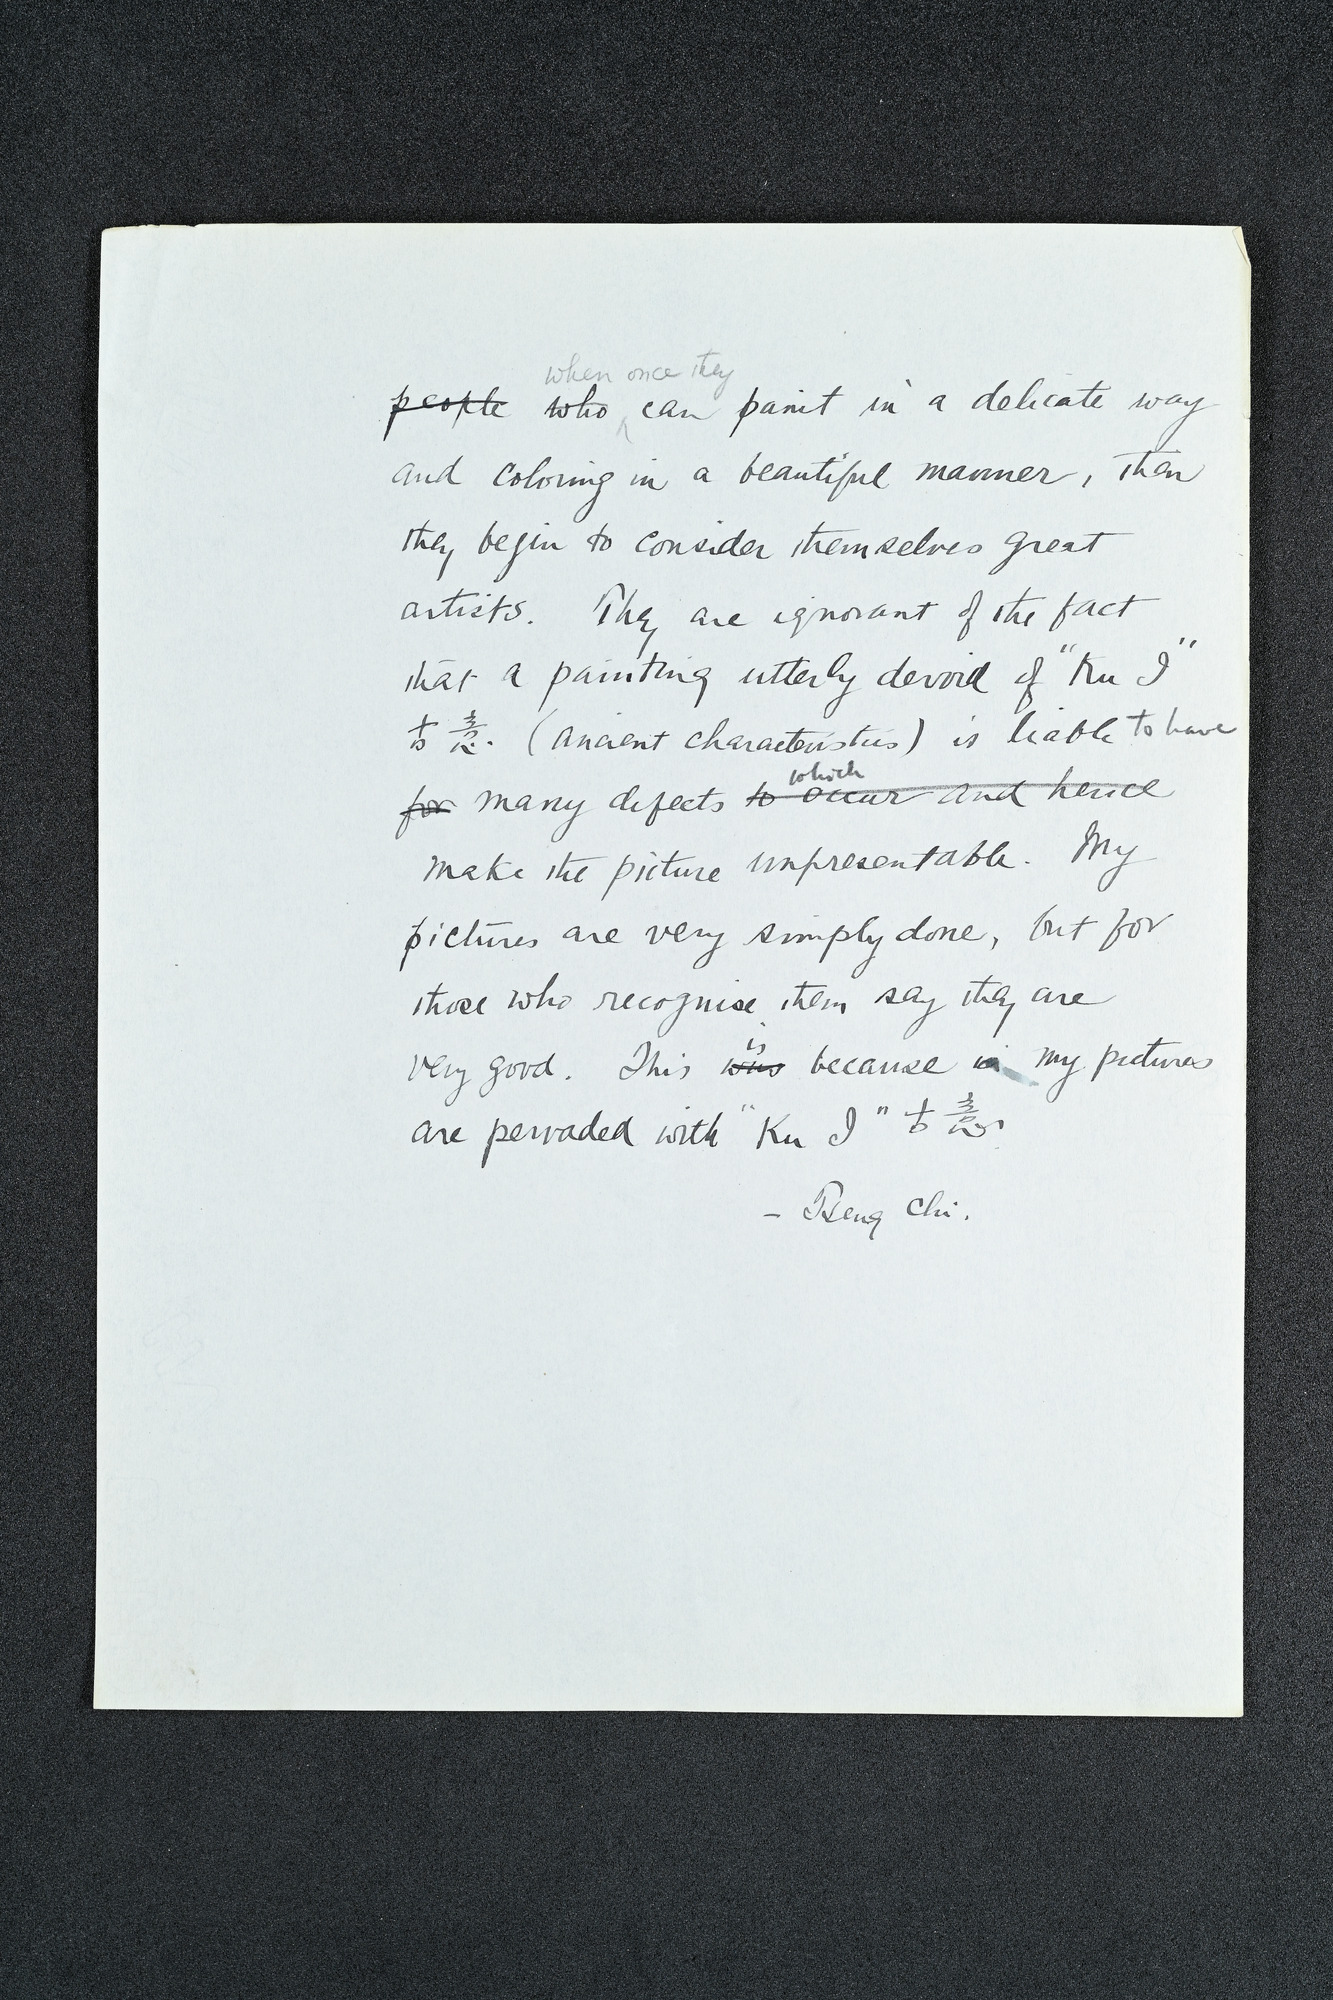 when once they
people who can paint in a delicate way
and coloring in a beautiful manner, then
they begin to consider themselves great
artists. They are ignorant of the fact
that a painting utterly devoid of "Ku I"
古意. (ancient characteristics) is liable to have
which
for many defects to occur and hence
make the picture unpresentable. My
pictures are very simply done, but for
those who recognise them say they are
very good. This was because in my pictures
is
are pervaded with "Ku I" 古意
- Tseng Chi.